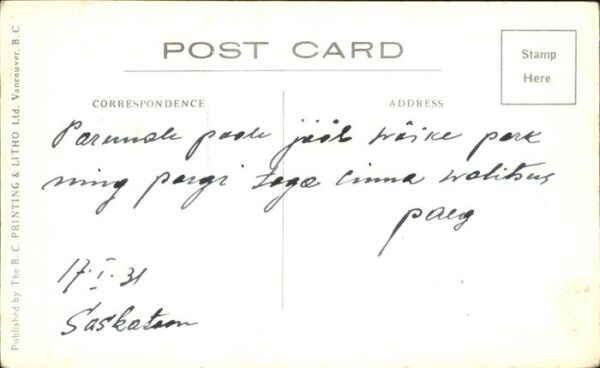 POST CARD
Stamp
Here
CORRESPONDENCE
ADDRESS
Paremale poole jääb wäike park
ning pargi taga linna walitsus
paeg
17.I.31
Saskatoon
Published by The B. C. PRINTING & LITHO. Ltd. Vancouver, B. C.